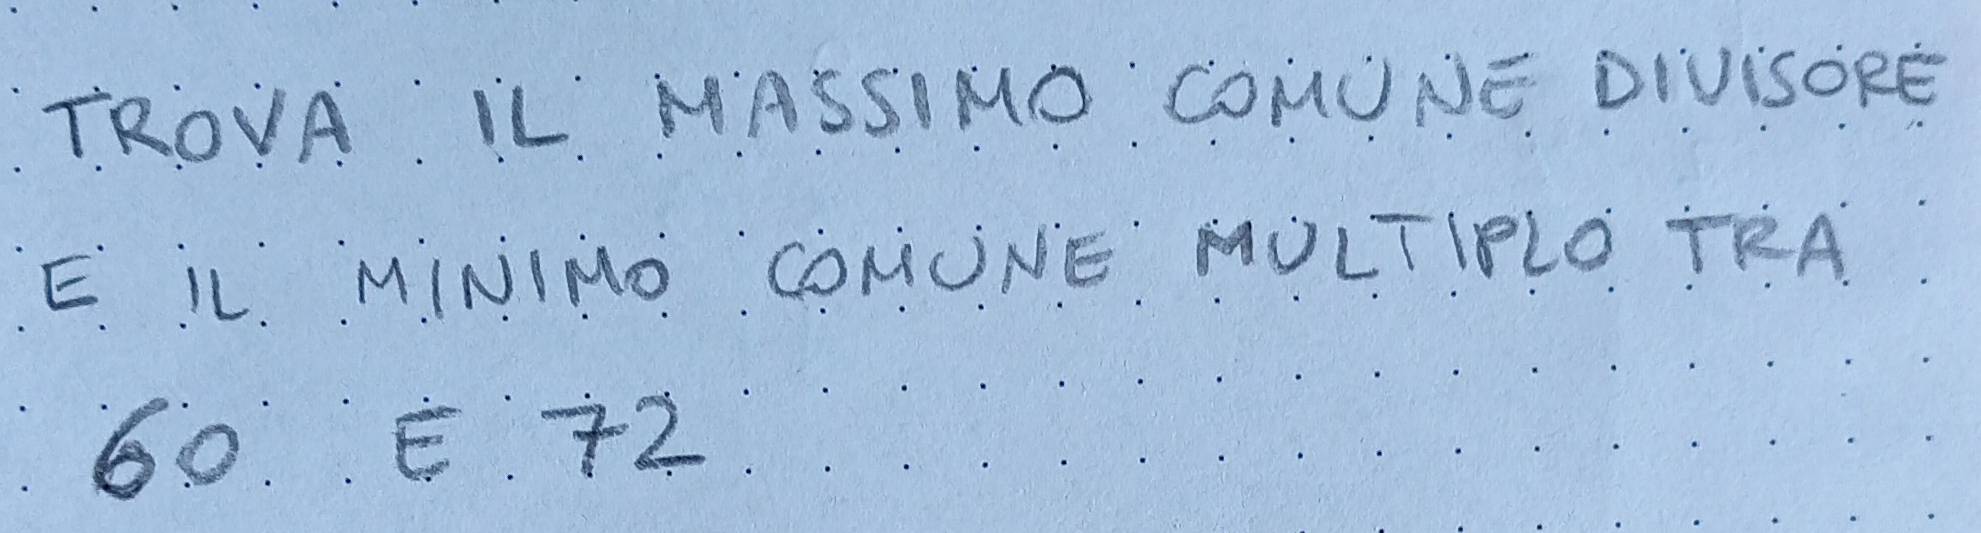 TROVA IL MASSIMO COMUNE DIVISORE
E IL MINIMO COMUNE MULTIPLO TRA
60 E 72